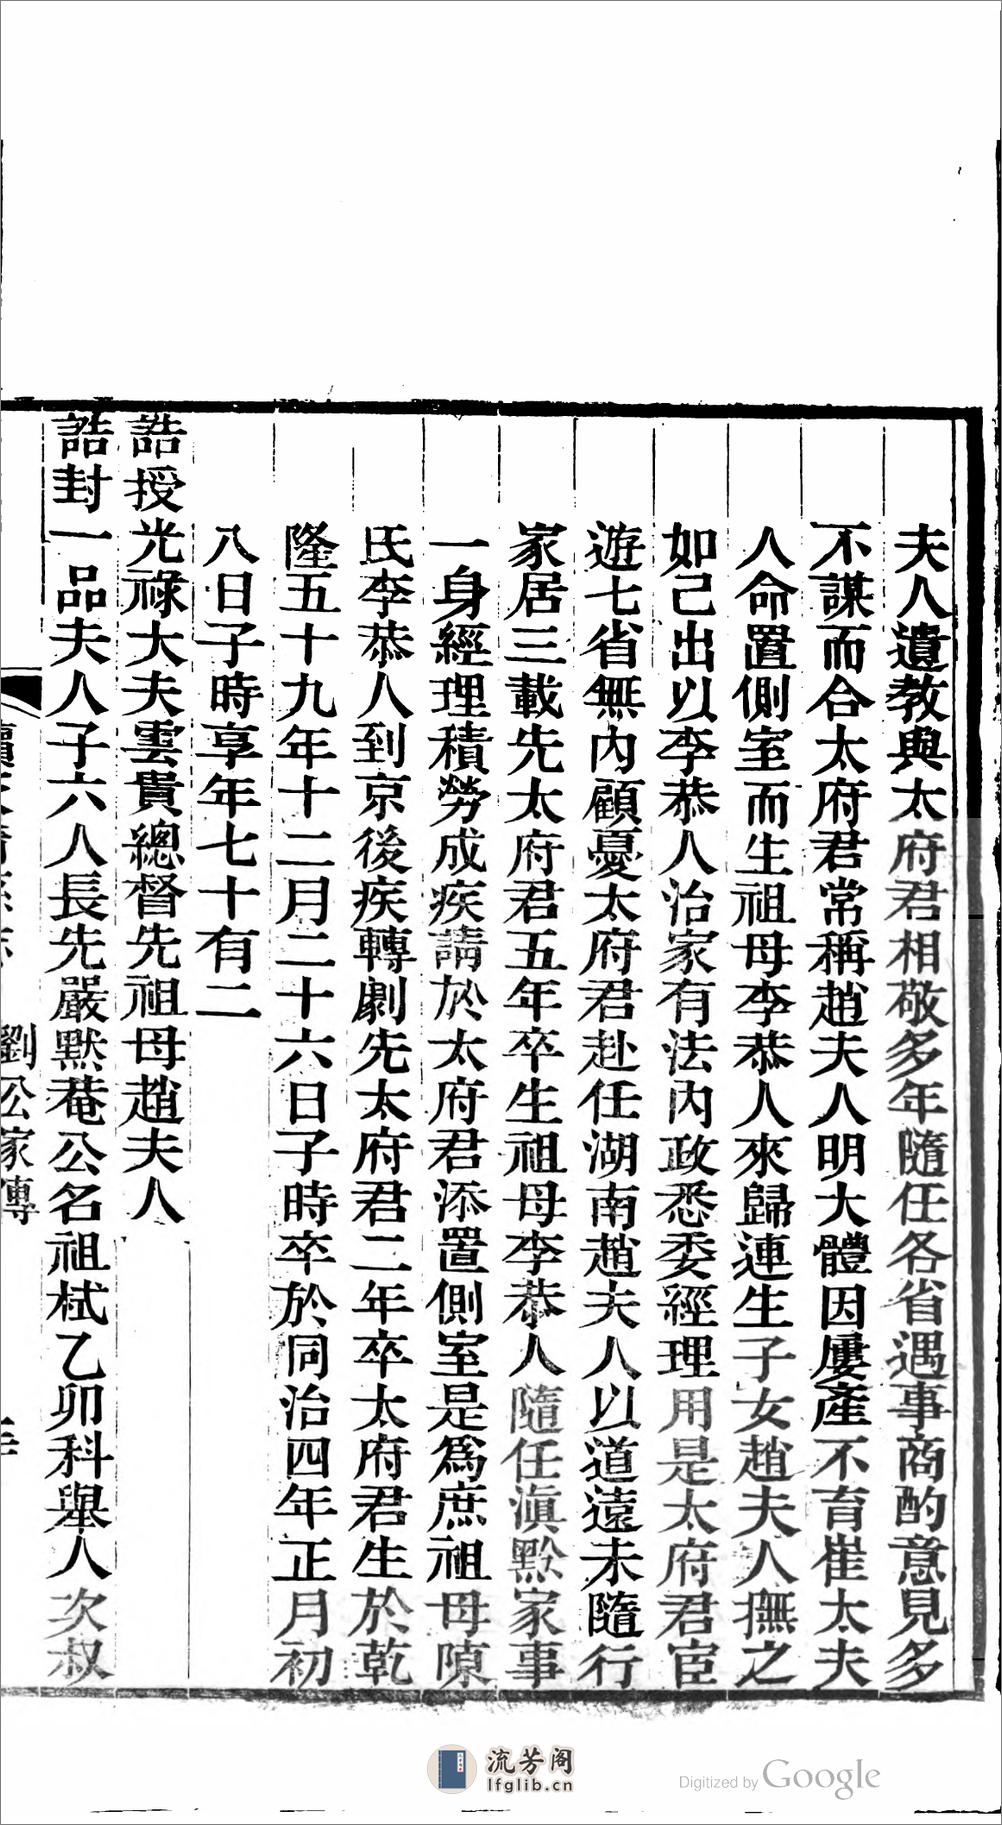 夫人遺教與太府君相敬多年隨任各省遇事商酌意見多
不謀而合太府君常稱趙夫人明大體因屢產不育崔太夫
人命置側室而生祖母李恭人來歸連生子女趙夫人撫之
如己出以李恭人治家有法內政悉委經理用是太府君宦
遊七省無內顧憂太府君赴任湖南趙夫人以道遠未隨行
家居三載先太府君五年卒生祖母李恭人隨任滇黔家事
一身經理積勞成疾請於太府君添置側室是爲庶祖母陳
氏李恭人到京後疾轉劇先太府君二年卒太府君生於乾
隆五十九年十二月二十六日子時卒於同治四年正月初
八日子時享年七十有二
誥授光祿大夫雲貴總督先祖母趙夫人
誥封一品夫人子六人長先嚴默菴公名祖栻乙卯科舉人次叔
劉公家傳
流芳阁
lfglib.cn
Digitized by Google